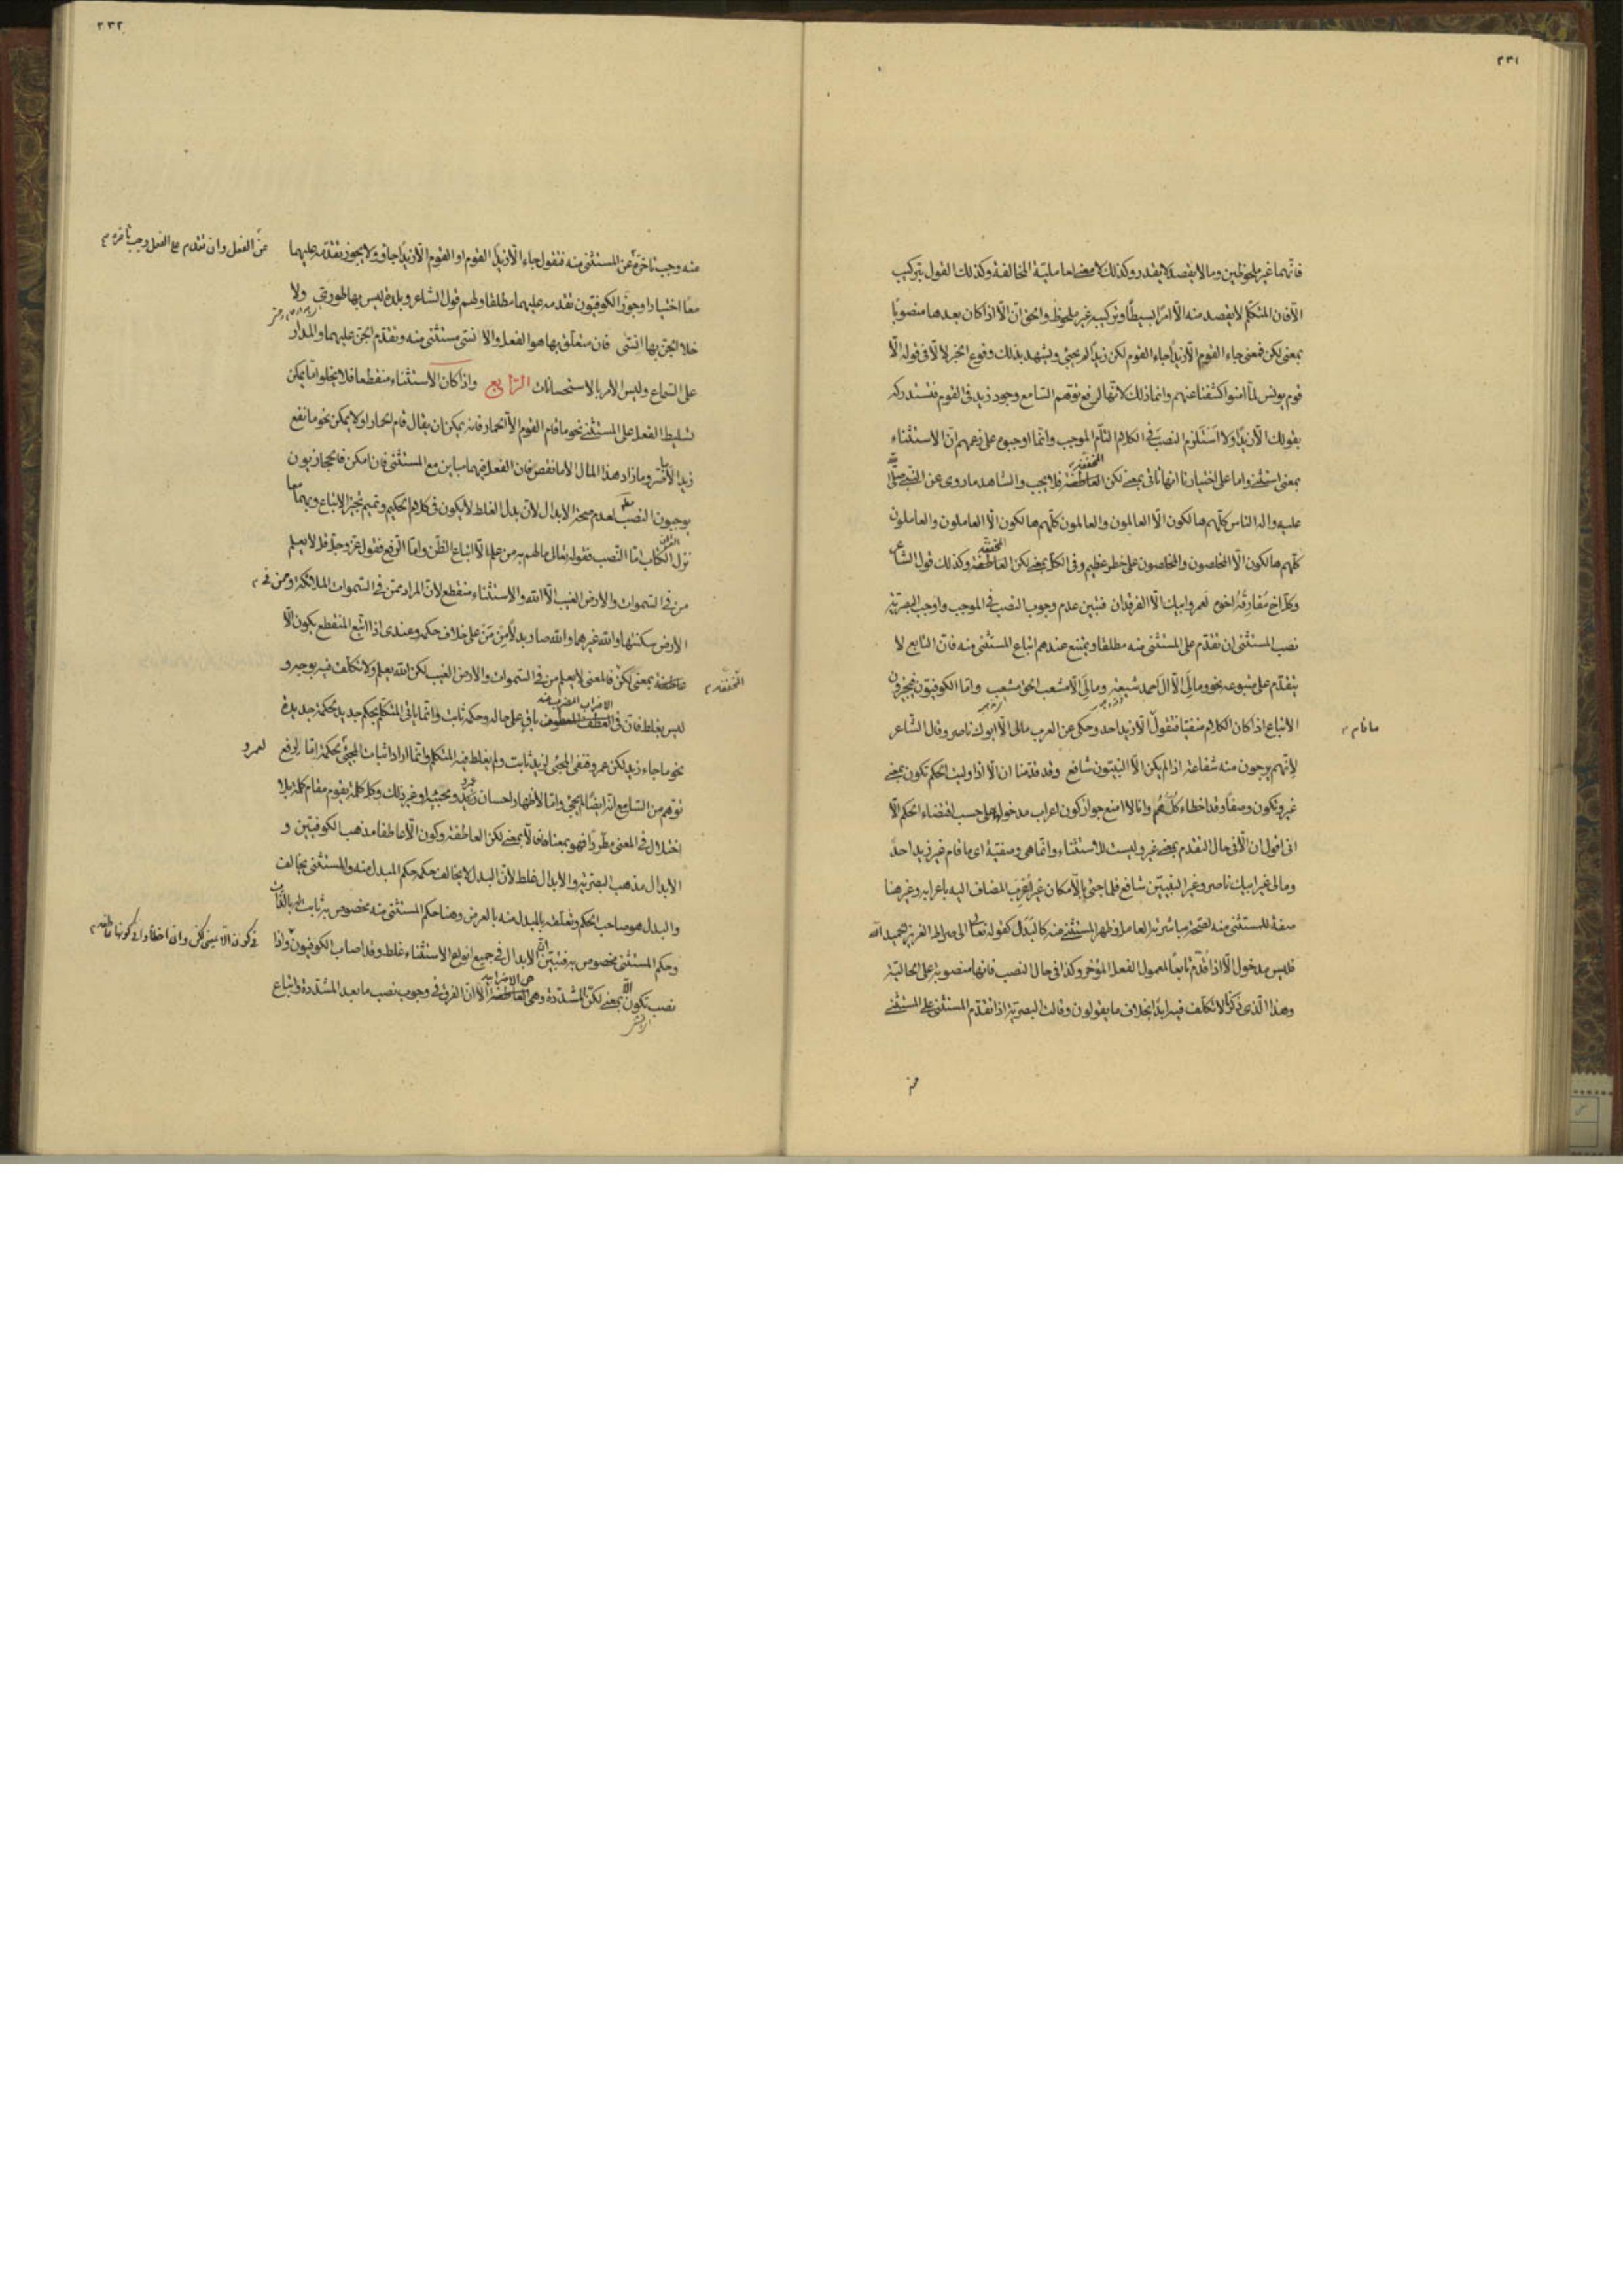 ٢٣١
فانهما غير ملحوظين وما لا يقصد لا يقدر وكذلك لا معنى لعاملية المخالفة وكذلك القول بتركيب
الا فان المتكلم لا يقصد منه الا امرا بسيطا وتركيبه غير ملحوظ والحق ان الا اذا كان بعدها منصوبا
بمعنى لكن فمعنى جاء القوم الا زيدا جاء القوم لكن زيدا لم يجئ ويشهد بذلك وقوع الخبر لالا في قوله الا
قوم يونس لما امنوا كشفنا عنهم وانما ذلك لانها لرفع توهم السامع وجود زيد في القوم فتستدركه
بقولك الا زيدا ولا استلزم النصب في الكلام التام الموجب وانما اوجبوه على زعمهم ان الاستثناء
بمعنى استثنى واما على اختيارنا انها تاتي بمعنى لكن العاطفة المخففة فلا يجب والشاهد ما روى عن النبي صلى الله
عليه واله الناس كلهم هالكون الا العالمون والعالمون كلهم هالكون الا العاملون والعاملون
كلهم هالكون الا المخلصون والمخلصون على خطر عظيم وفي الكل بمعنى لكن العاطفة المخففة وكذلك قول الشاعر
وكل اخ مفارقه اخوه لعمر ابيك الا الفرقدان فتبين عدم وجوب النصب في الموجب واوجب البصرية
نصب المستثنى ان تقدم على المستثنى منه مطلقا ويمتنع عندهم اتباع المستثنى منه فان التابع لا
يتقدم على متبوعه نحو ومالي الا ال احمد شيعة ومالي الا مشعب الحق مشعب واما الكوفيون فيجيزون
الاتباع اذا كان الكلام منفيا فتقول الا زيد احد وحكي عن العرب مالي الا ابوك ناصر وقال الشاعر
ما قام
لانهم يرجون منه شفاعة اذا لم يكن الا النبيون شافع وقد قدمنا ان الا اذا وليت الحكم تكون بمعنى
غير وتكون وصفا وقد اخطاء كلهم وانا لا امنع جواز كون اعراب مدخولها على حسب اقتضاء الحكم الا
اني اقول ان الا في حال التقدم بمعنى غير وليست للاستثناء وانما هي وصفية اي ما قام غير زيد احد
ومالي غير ابيك ناصر وغير النبيين شافع فلما جئ بالا مكان غير اعرب المضاف اليه باعرابه وغير هنا
صفة للمستثنى منه لصحة مباشرته العامل وظهر المستثنى منه كالبدل كقوله تعالى الى صراط العزيز الحميد الله
فليس مدخول الا اذا قدم تابعا لمعمول الفعل المؤخر وكذا في حال النصب فانها منصوبة على الحالية
وهذا الذي ذكرنا لا تكلف فيه ابدا بخلاف ما يقولون وقالت البصرية اذا تقدم المستثنى على المستثنى
منه
٢٣٢
منه وجب تاخره عن المستثنى منه فتقول جاء الا زيدا القوم او القوم الا زيدا جاؤو ولا يجوز تقدمه عليهما
عن الفعل وان تقدم على الفعل وجب تاخره
معا اختيارا وجوز الكوفيون تقدمه عليهما مطلقا ولهم قول الشاعر وبلدة ليس بها طوري ولا
خلا الجن بها انسي فان متعلق بها هو الفعل والا انسي مستثنى منه وتقدم الجن عليهما والمدار
على السماع وليس الامر بالاستحسانات الرابع واذا كان الاستثناء منقطعا فلا يخلو اما يمكن
تسليط الفعل على المستثنى نحو ما قام القوم الا الحمار فانه يمكن ان يقال قام الحمار او لا يمكن نحو ما نفع
زيد الا ما ضر وما زاد هذا المال الا ما نقص فان الفعل فيهما مباين مع المستثنى فان امكن فالحجازيون
يوجبون النصب لعدم صحة الابدال لان بدل الغلط لا يكون في كلام الحكيم وتميم تجيز الاتباع وبهما معا
نزل الكتاب اما النصب فقوله تعالى مالهم به من علم الا اتباع الظن واما الرفع فقول عز وجل قل لا يعلم
من في السموات والارض الغيب الا الله والاستثناء منقطع لان المراد ممن في السموات الملائكة ومن في
الارض سكنتها والله غيرهما والله صار بدلا من من على خلاف حكمه وعندي اذا اتبع المنقطع يكون الا
عاطفة بمعنى لكن فالمعنى لا يعلم من في السموات والارض الغيب لكن الله يعلم ولا تكلف فيه بوجه و
المخففة
ليس بغلط فان في العطف المعطوف باق على حاله وحكمه ثابت وانما ياتي المتكلم بحكم جديد لحكمة جديدة
نحو ما جاء زيد لكن عمرو فنفي المجئ لزيد ثابت ولم يغلط فيه المتكلم وانما اراد اثبات المجئ لحكمة اما لرفع
لعمرو
توهم من السامع انه ايضا لم يجئ واما لاظهار احسان زيد ومحبته او غير ذلك وكل كلمة يقوم مقام كلمة بلا
اختلال في المعنى مطردا فهو بمعناها فالا بمعنى لكن العاطفة وكون الا عاطفا مذهب الكوفيين و
الابدال مذهب البصرية والابدال غلط لان البدل لا يخالف حكمه حكم المبدل منه والمستثنى يخالف
والبدل هو صاحب الحكم وتعلقه بالمبدل منه بالعرض وهنا حكم المستثنى منه مخصوص به ثابت له بالذات
وحكم المستثنى مخصوص به فتبين ان الابدال في جميع انواع الاستثناء غلط وقد اصاب الكوفيون واذا
في كون الا بمعنى لكن وان اخطأوا في كونها عاطفة
نصب تكون الا بمعنى لكن المشددة وهي العاطفة الا ان الفرق في وجوب نصب ما بعد المشددة واتباع